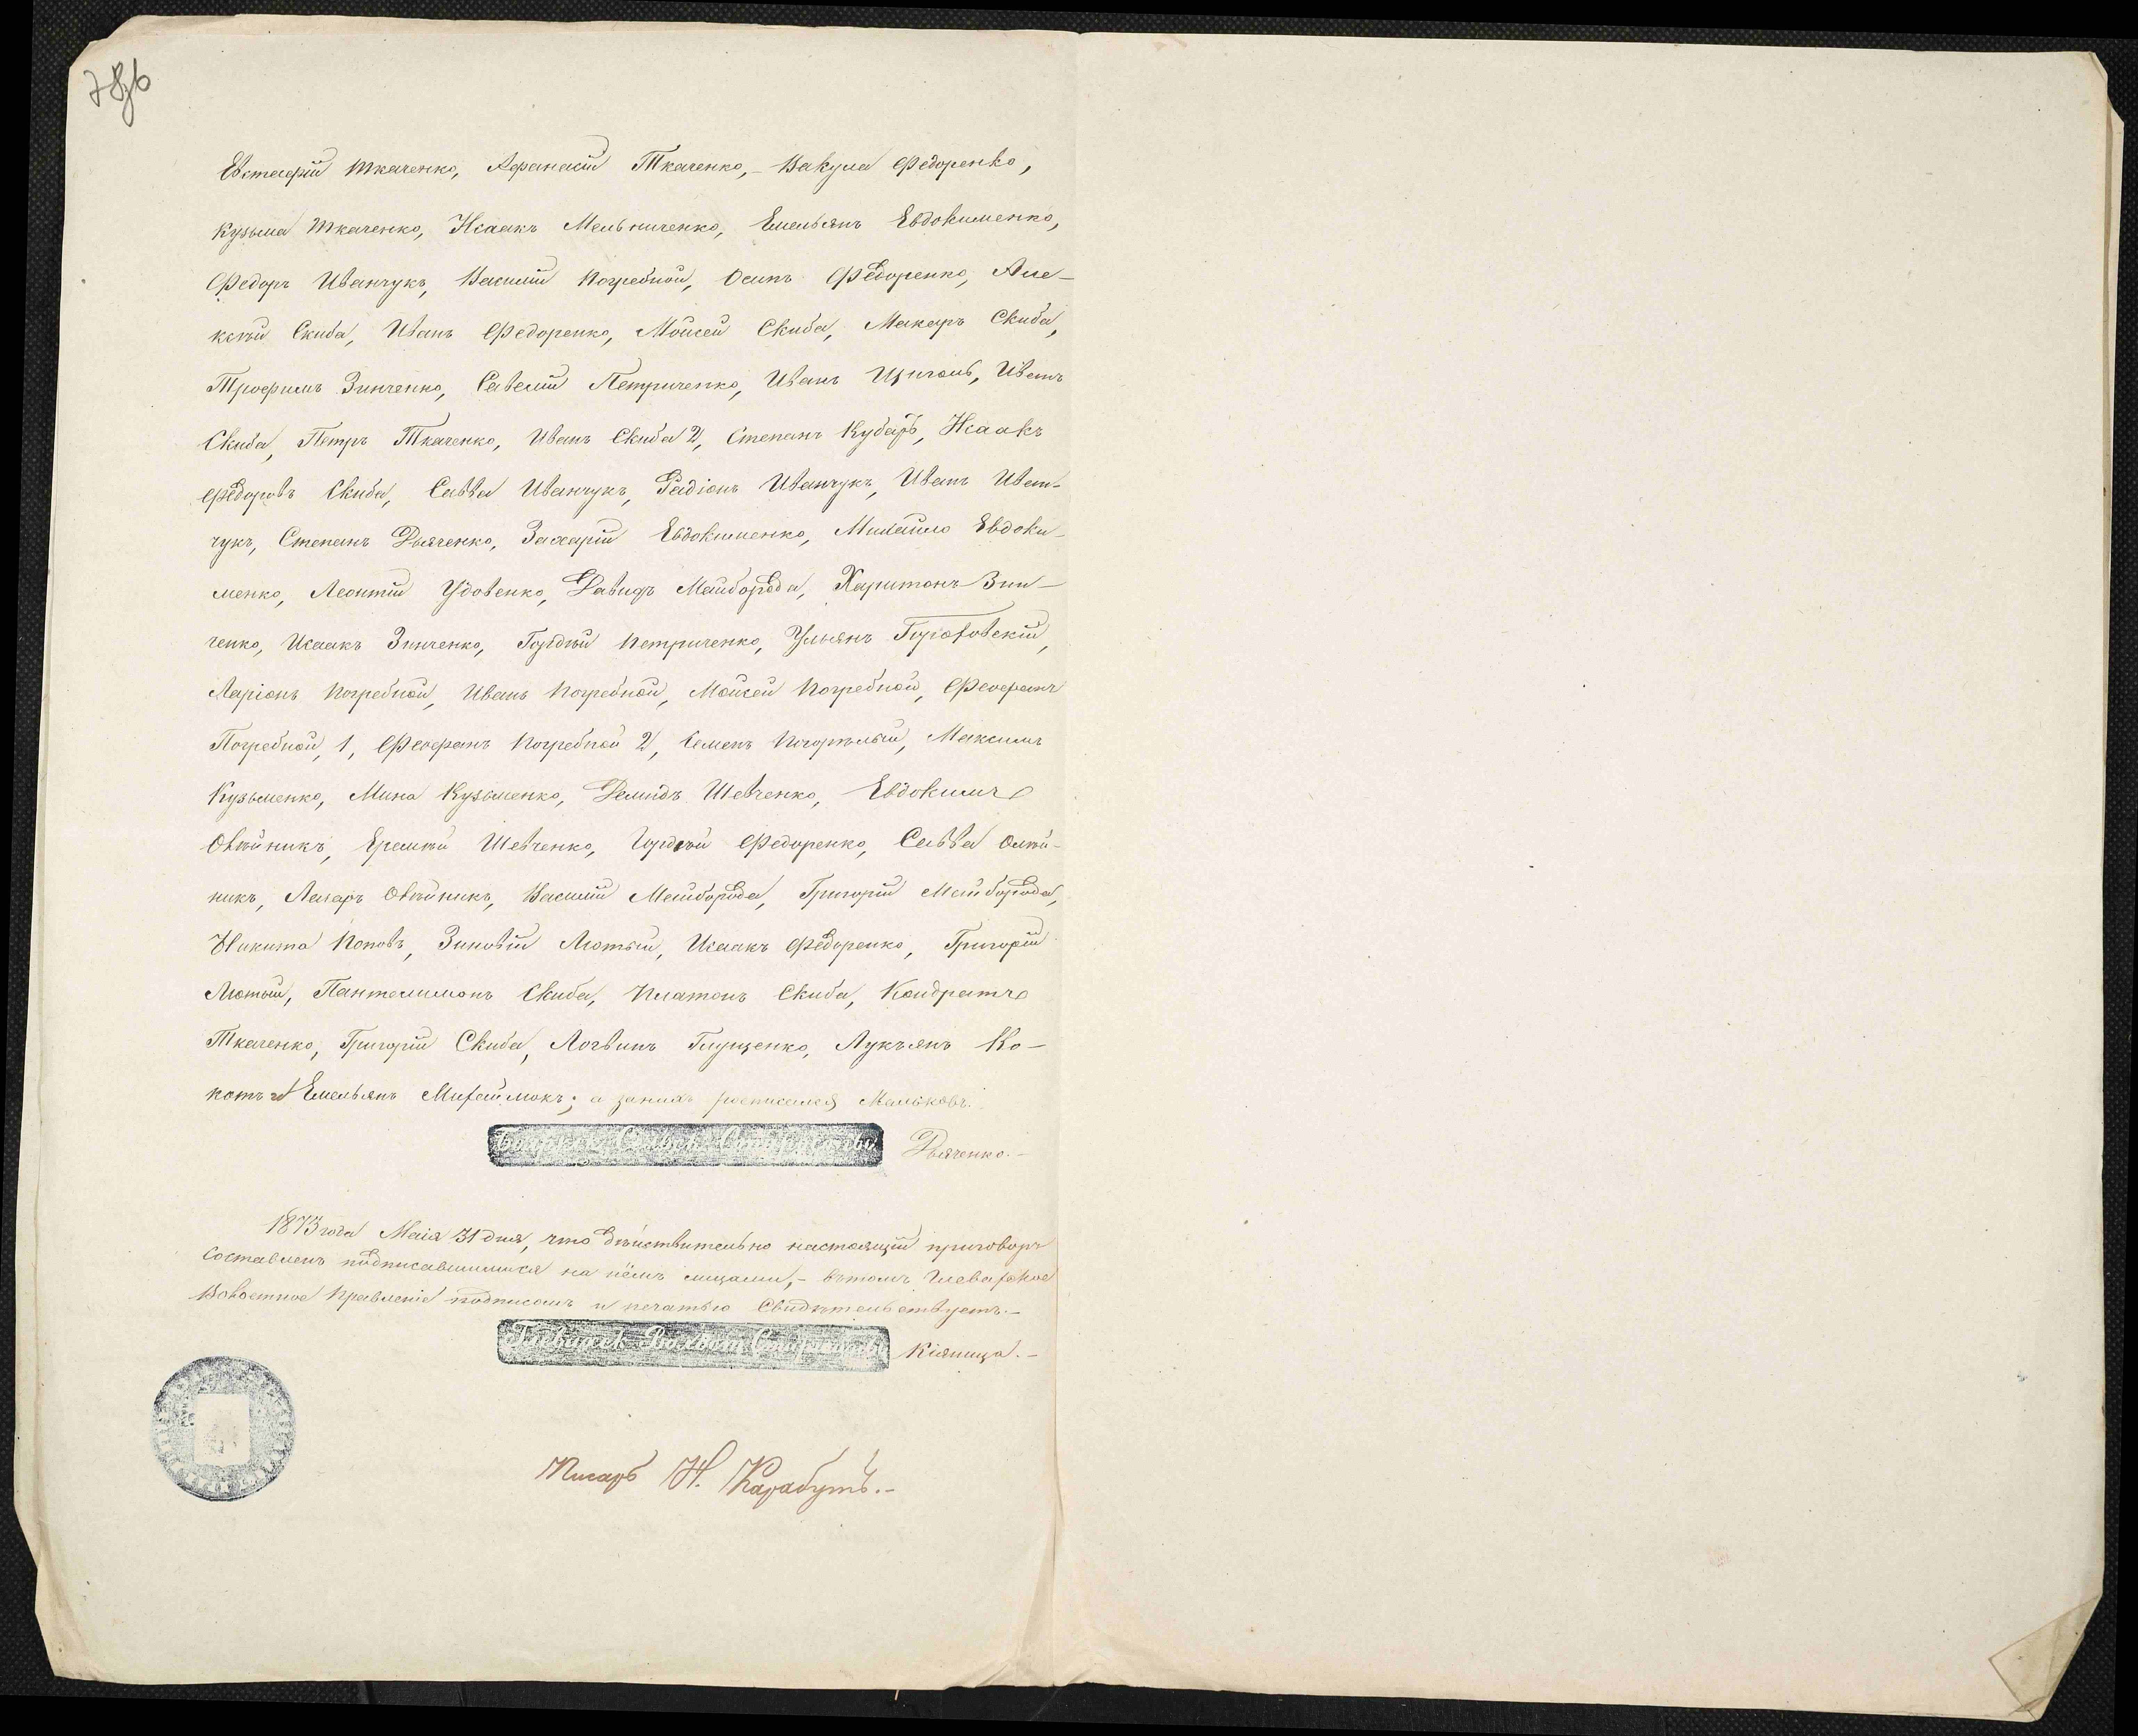 Евстафій Ткаченко, Афанасій Ткаченко,- Вакула Федоренко,
Кузьма Ткаченко, Исаакъ Мельниченко, Емельянъ Евдокименко,
Федоръ Иванчукъ, Василій Погребной, Осипъ Федоренко, Але-
ксѣй Скиба, Иванъ Федоренко, Мойсей Скиба, Макаръ Скиба,
Трофимъ Зинченко, Савелій Петриченко, Иванъ Иванъ
Скиба, Петръ Ткаченко, Иванъ Скиба 2, Степанъ Кубарь, Исаакъ
Федоровъ Скиба, Савва Иванчукъ, Радіонъ Иванчукъ, Иванъ Иван-
чукъ, Степанъ Дьяченко, Захарій Евдокименко, Михайло Евдоки-
менко, Леонтій Удовенко, Давидъ Майборода, Харитонъ Зин-
ченко, Исаакъ Зинченко, Гордѣй Петриченко, Ульянъ
Ларіонъ Погребной, Иванъ Погребной, Мойсей Погребной, Феофанъ
Погребной, 1, Феофанъ Погребной 2, Семенъ Погорѣлый, Максимъ
Кузьменко, Мина Кузьменко, Демидъ Шевченко, Евдокимъ
Олѣйникъ, Еремѣй Шевченко, Гордѣй Федоренко, Савва Олѣй-
никъ, Лазарь Олѣйникъ, Василій Майборода, Григорій Майборода,
Никита Поповъ, Зиновій Лютый, Исаакъ Федоренко, Григорій
Лютый, Пантелимонъ Скиба, Платонъ Скиба, Кондратъ
Ткаченко, Григорій Скиба, Логвинъ Глущенко, Лукьянъ Ко-
Емельянъ а занихъ росписался Мальковъ.
Дьяченко.-
1873 года Маія 31 дня, что дѣйствительно настоящій приговоръ
составленъ подписавшимися на нёмъ лицами,- вътомъ Глевахское
Волостное Правленіе подписомъ и печатью Свидѣтельствуетъ.-
Кіяница.-
Писарь Н. Карабутъ.-